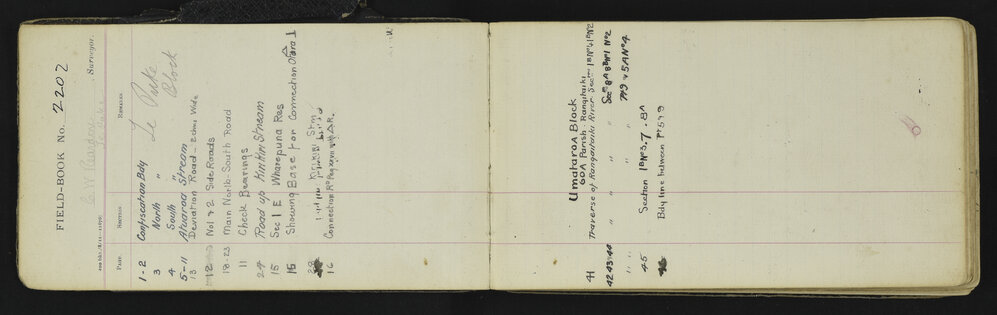 FIELD-BOOK No. 2202
Surveyor.
PAGE. RECORD. REMARKS.
1-2 Confiscation Bdy Te Puke
3 North " Block
4 South "
5-11 Atuaroa Stream
13 Deviation Road - 2 chns Wide
12 No 1 & 2 Side Roads
18-23 Main North-South Road
11 Check Bearings
24 Road up Kirikiri Stream
15 Sec 1 E Wharepuna Res
15 Showing Base for Connection Otara
16 Connection
41 Umataroa Block
60A Parish Rangitaiki
Traverse of Rangitaiki River Sectn 1B No 4, 1B No 2
42 43 44 " " " Secn 8A 8B No 1 No 2
" " " " " 7 No 9 & 5A No 4
45 Section 1B No 3, 7, 8A
Bdy line between